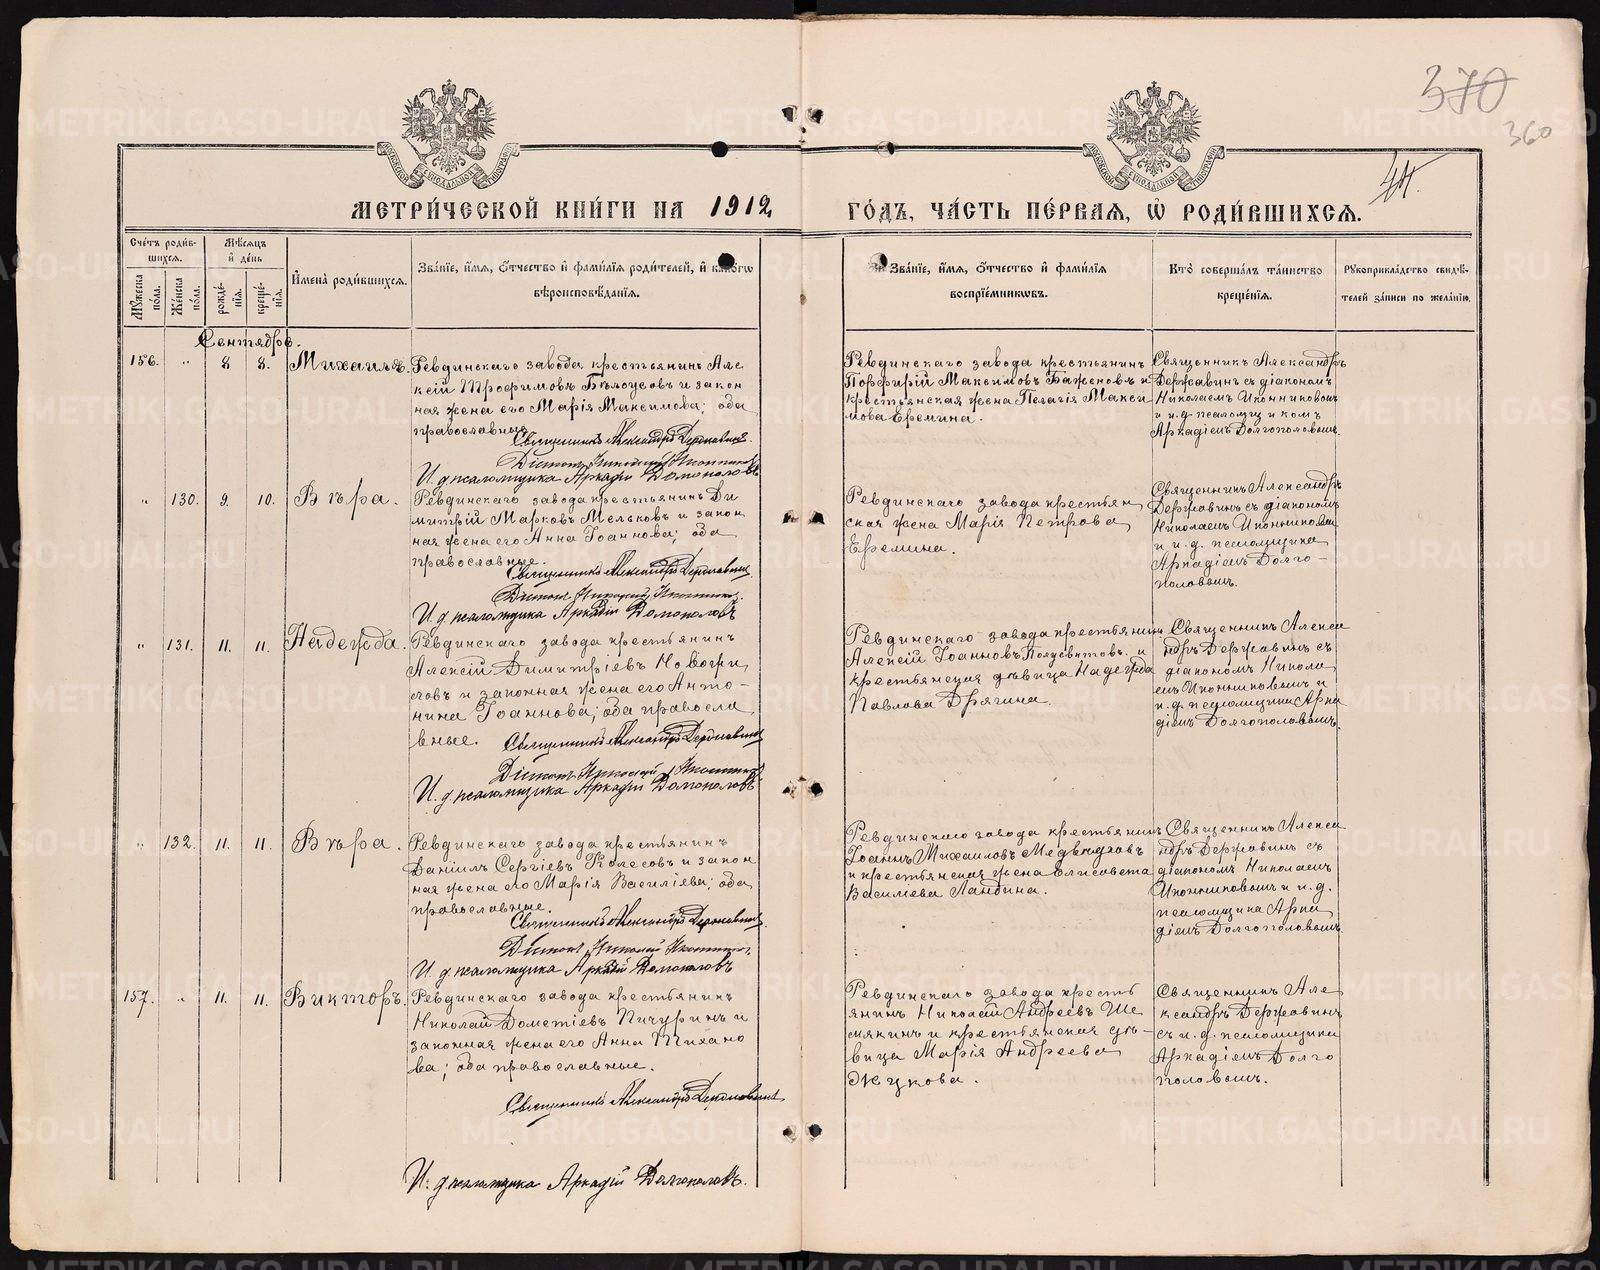 370
360
МЕТРИ́ЧЕСКОЙ КНИ́ГИ НА 1912 ГО́ДЪ, ЧА́СТЬ ПЕ́РВАЯ, Ѡ РОДИ́ВШИХСЯ.
Сче́тъ роди́в-
шихся.
Мѣ́сяцъ
и де́нь
Мꙋжеска по́ла.
Же́нска по́ла.
рожде́-
нїя.
креще́-
нїя.
И҆мена̀ роди́вшихся.
Зва́нїе, и҆́мя, ѻ҆́тчество и҆ фами́лїя роди́телей, и҆ како́гѡ
вѣроисповѣ́данїя.
Зва́нїе, и҆́мя, ѻ҆́тчество и҆ фами́лїя
воспрїе́мникѡвъ.
Кто̀ соверша́лъ та́инство
креще́нїя.
Рꙋкоприкла́дство свидѣ́-
телей за́писи по жела́нїю.
Сентябрь.
156. " 8 8. Михаилъ.
Ревдинскаго завода крестьянинъ Але
ксій Трофимовъ Бѣлоусовъ и закон
ная жена его Марія Максимова; оба
православные.
Священникъ Александръ Державинъ
Діаконъ Николай Иконниковъ
И. д. псаломщика Аркадій Долгополовъ
Ревдинскаго завода крестьянинъ
Порфирій Максимовъ Баженовъ и
крестьянская жена Пелагія Макси
мова Еремина.
Священникъ Александръ
Державинъ съ діакономъ
Николаемъ Иконниковымъ
и и. д. псаломщикомъ
Аркадіемъ Долгополовымъ.
" 130. 9. 10. Вѣра.
Ревдинскаго завода крестьянинъ Ди
митрій Марковъ Мельковъ и закон
ная жена его Анна Іоаннова; оба
православные.
Священникъ Александръ Державинъ
Діаконъ Николай Иконниковъ.
И. д. псаломщика Аркадій Долгополовъ
Ревдинскаго завода крестьян
ская жена Марія Петрова
Еремина.
Священникъ Александръ
Державинъ съ діакономъ
Николаемъ Иконниковым
и и. д. псаломщика
Аркадіемъ Долго-
половымъ.
" 131. 11. 11. Надежда.
Ревдинскаго завода крестьянинъ
Алексій Димитріевъ Новогри
совъ и законная жена его Анто-
нина Іоаннова; оба правосла
вные.
Священникъ Александръ Державинъ
Діаконъ Николай Иконниковъ
И. д. псаломщика Аркадій Долгополовъ
Ревдинскаго завода крестьянинъ
Алексій Іоанновъ Полуевитовъ и
крестьянская дѣвица Надежда
Павлова Дрягина.
Священникъ Алекса
ндръ Державинъ съ
діакономъ Никола
емъ Иконниковымъ и
и. д. псаломщика Арка
діемъ Долгополовымъ.
" 132. 11. 11. Вѣра.
Ревдинскаго завода крестьянинъ
Даніилъ Сергіевъ Колесовъ и закон
ная жена его Марія Василіева; оба
православные.
Священникъ Александръ Державинъ
Діаконъ Николай Иконниковъ.
И. д. псаломщика Аркадій Долгополовъ
Ревдинскаго завода крестьянинъ
Іоаннъ Михаиловъ Медвѣдковъ
и крестьянская жена Елисавета
Василіева Ландина.
Священникъ Алекса
ндръ Державинъ съ
діакономъ Николаемъ
Иконниковымъ и и. д.
псаломщика Арка
діемъ Долгополовымъ.
157. " 11. 11. Викторъ.
Ревдинскаго завода крестьянинъ
Николай Дометіевъ Пичугинъ и
законная жена его Анна Тихано
ва; оба православные.
Священникъ Александръ Державинъ
И. д. псаломщика Аркадій Долгополовъ.
Ревдинскаго завода кресть
янинъ Николай Андреевъ Ше
мякинъ и крестьянская дѣ-
вица Марія Андреева
Жукова.
Священникъ Але
ксандръ Державинъ
съ и. д. псаломщика
Аркадіемъ Долго
половымъ.
METRIKI.GASO-URAL.RU